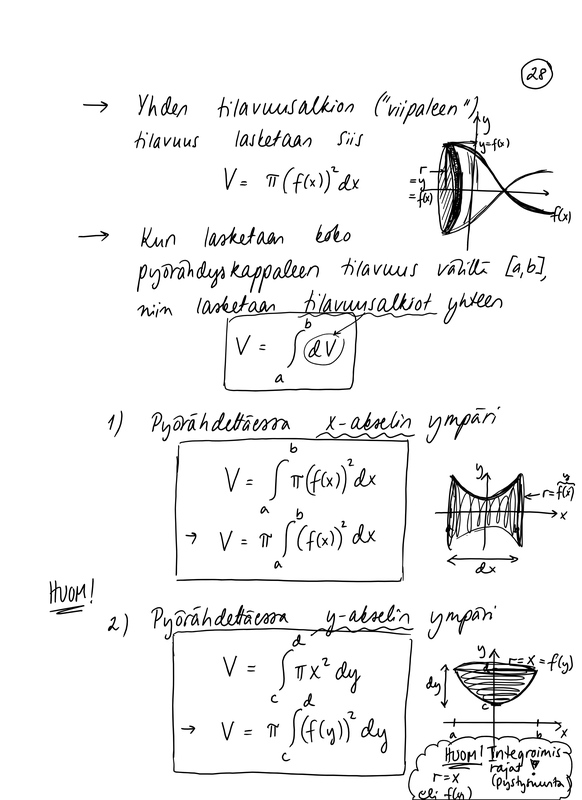 28
→ Yhden tilavuusalkion ("viipaleen")
tilavuus lasketaan siis
V = π(f(x))² dx
y
y=f(x)
r
= y
= f(x)
f(x)
→ Kun lasketaan koko
pyörähdyskappaleen tilavuus väliltä [a,b],
niin lasketaan tilavuusalkiot yhteen
V = ∫ₐᵇ dV
1) Pyörähdettäessä x-akselin ympäri
V = ∫ₐᵇ π(f(x))² dx
→ V = π ∫ₐᵇ (f(x))² dx
y
r=
f(x)
x
dx
HUOM!
2) Pyörähdettäessä y-akselin ympäri
V = ∫_c^d πx² dy
→ V = π ∫_c^d (f(y))² dy
y
r=x=f(y)
dy
c
a b x
HUOM! Integroimis-
rajat !
r=x (pystysuunta)
eli f(y)